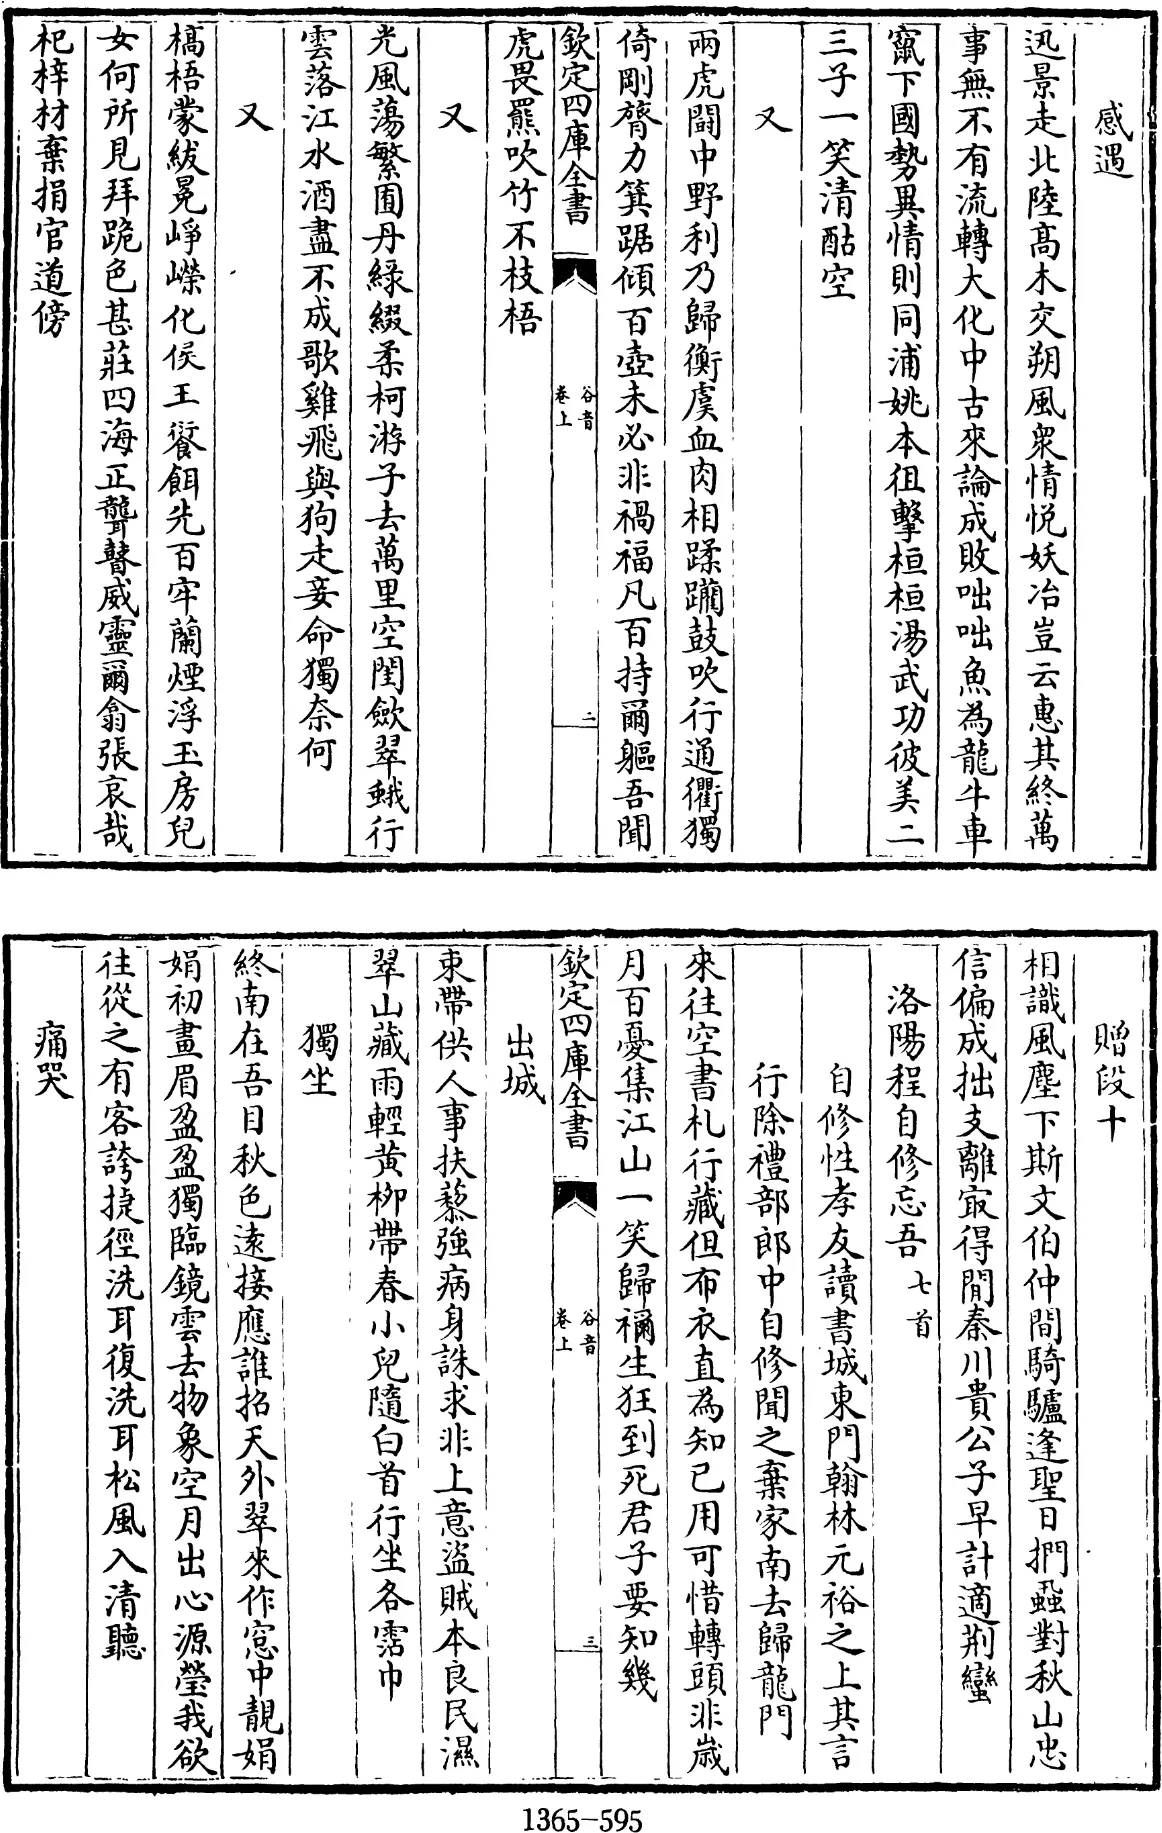 感遇
迅景走北陸髙木交朔風衆情悅妖冶豈云惠其終萬
事無不有流轉大化中古來論成敗咄咄魚為龍牛車
竄下國勢異情則同浦姚本徂擊桓桓湯武功彼美二
三子一笑清酤空
又
兩虎鬬中野利乃歸衡虞血肉相蹂躪鼓吹行通衢獨
倚剛膂力箕踞傾百壺未必非禍福凡百持爾軀吾聞
欽定四庫全書
谷音
卷上
二
虎畏羆吹竹不枝梧
又
光風蕩繁囿丹綠綴柔柯游子去萬里空閨歛翠蛾行
雲落江水酒盡不成歌雞飛與狗走妾命獨奈何
又
槁梧蒙紱冕崢嶸化侯王饔餌先百牢蘭煙浮玉房兒
女何所見拜跪色甚莊四海正聾瞽威靈爾翕張哀哉
杞梓材棄捐官道傍
贈段十
相識風塵下斯文伯仲間騎驢逢聖日捫蝨對秋山忠
信偏成拙支離㝡得閒秦川貴公子早計適荆蠻
洛陽程自修忘吾 七首
自修性孝友讀書城東門翰林元裕之上其言
行除禮部郎中自修聞之棄家南去歸龍門
來往空書札行藏但布衣直為知已用可惜轉頭非歲
月百憂集江山一笑歸禰生狂到死君子要知幾
欽定四庫全書
谷音
卷上
三
出城
束帶供人事扶藜強病身誅求非上意盜賊本良民濕
翠山藏雨輕黄柳帶春小兒隨白首行坐各霑巾
獨坐
終南在吾目秋色遠接應誰招天外翠來作窓中靚娟
娟初畫眉盈盈獨臨鏡雲去物象空月出心源瑩我欲
往從之有客誇捷徑洗耳復洗耳松風入清聽
痛哭
1365-595